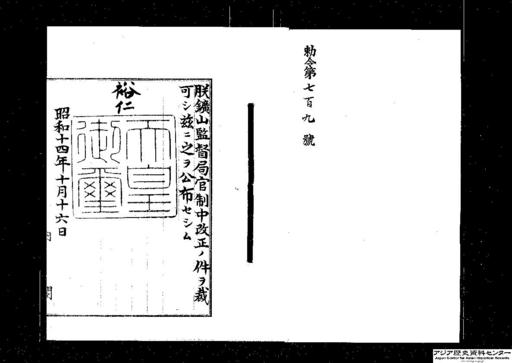 勅令第七百九號
朕鑛山監督局官制中改正ノ件ヲ裁
可シ茲ニ之ヲ公布セシム
裕仁
天皇
御璽
昭和十四年十月十六日
アジア歴史資料センター
Japan Center for Asian Historical Records